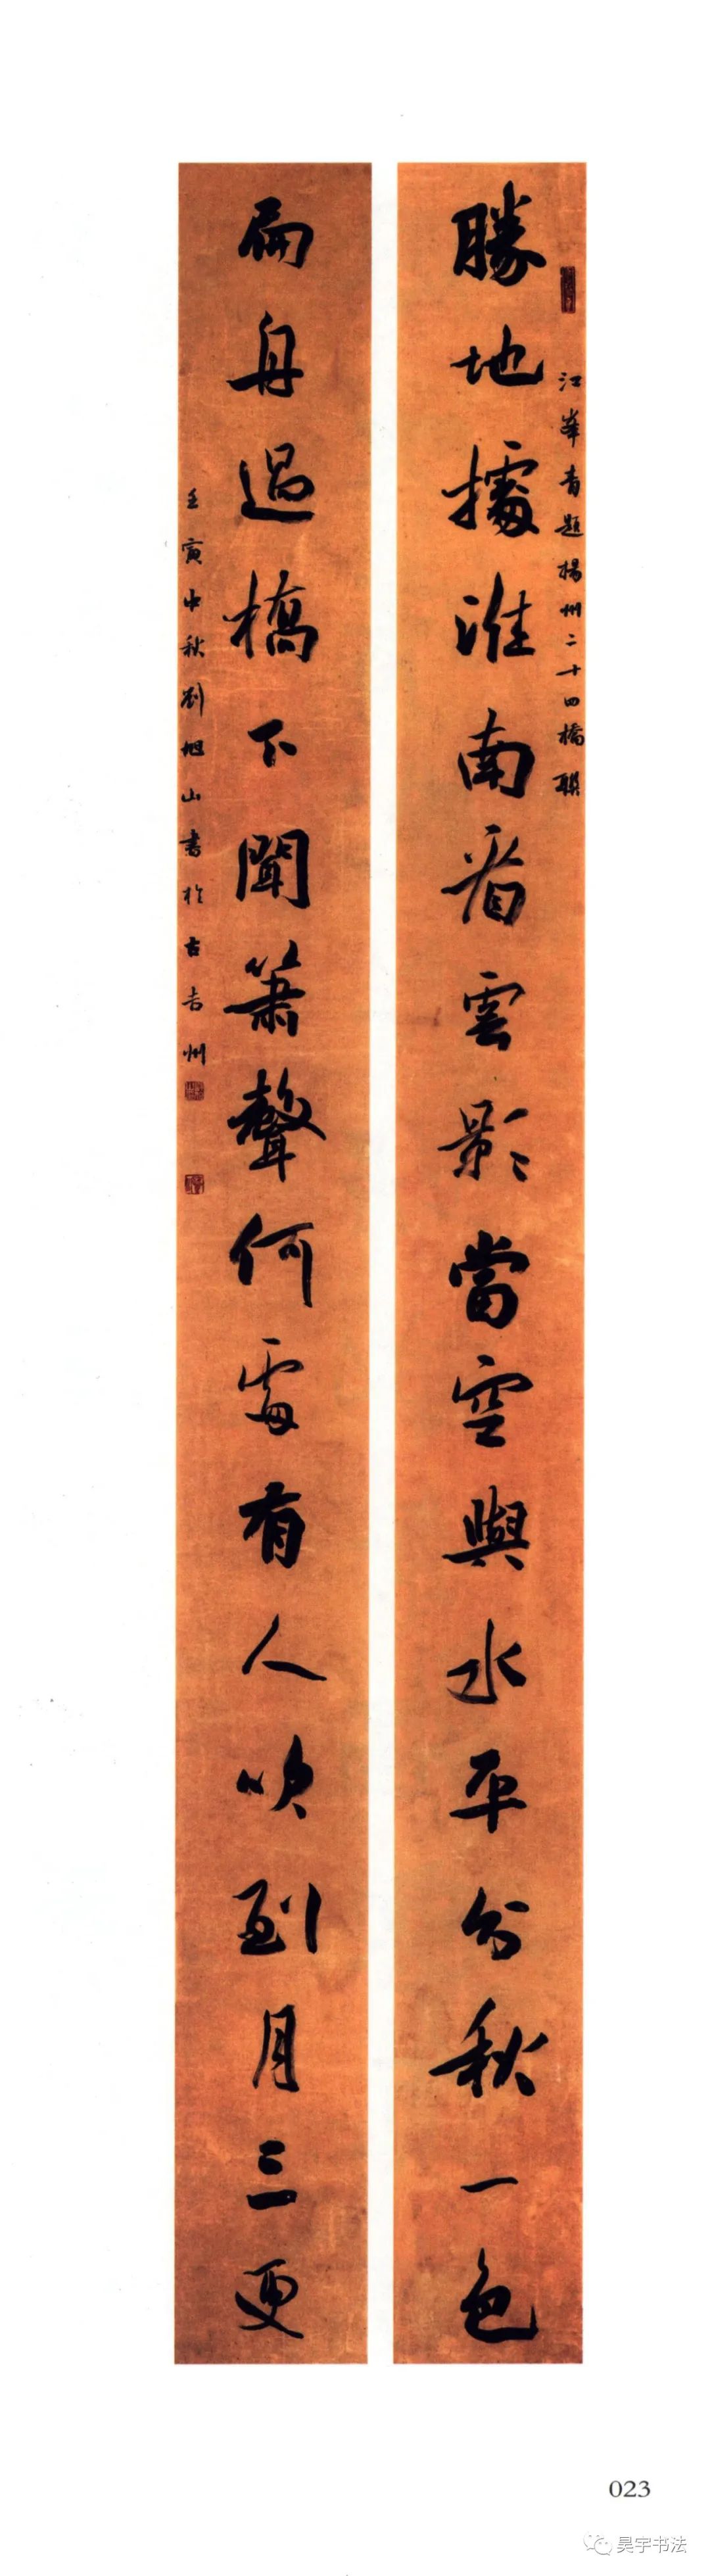 江峯青題楊州二十四橋聯
勝地據淮南看雲影當空與水平分秋一色
扁舟過橋下聞簫聲何處有人吹到月三更
壬寅中秋劉旭山書於古吉州
023
昊宇书法